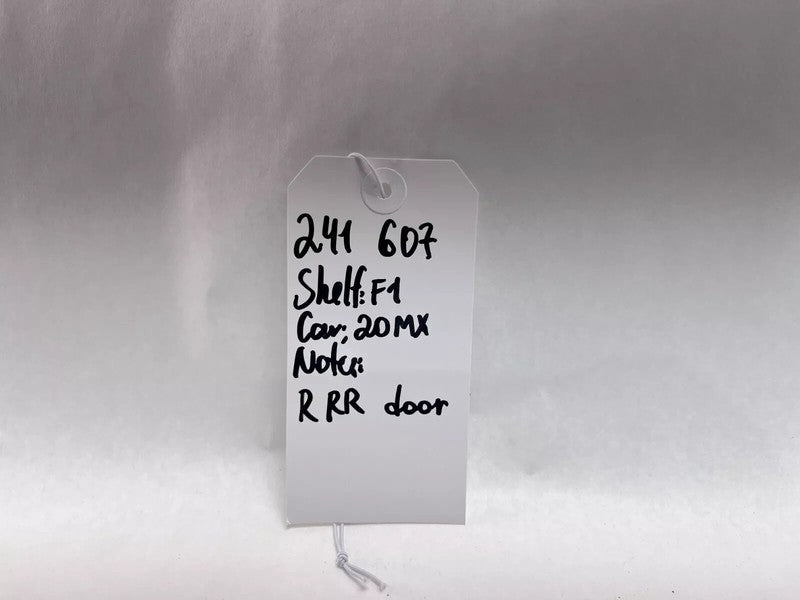 241 607
Shelf: F1
Car: 20MX
Notes:
R RR door